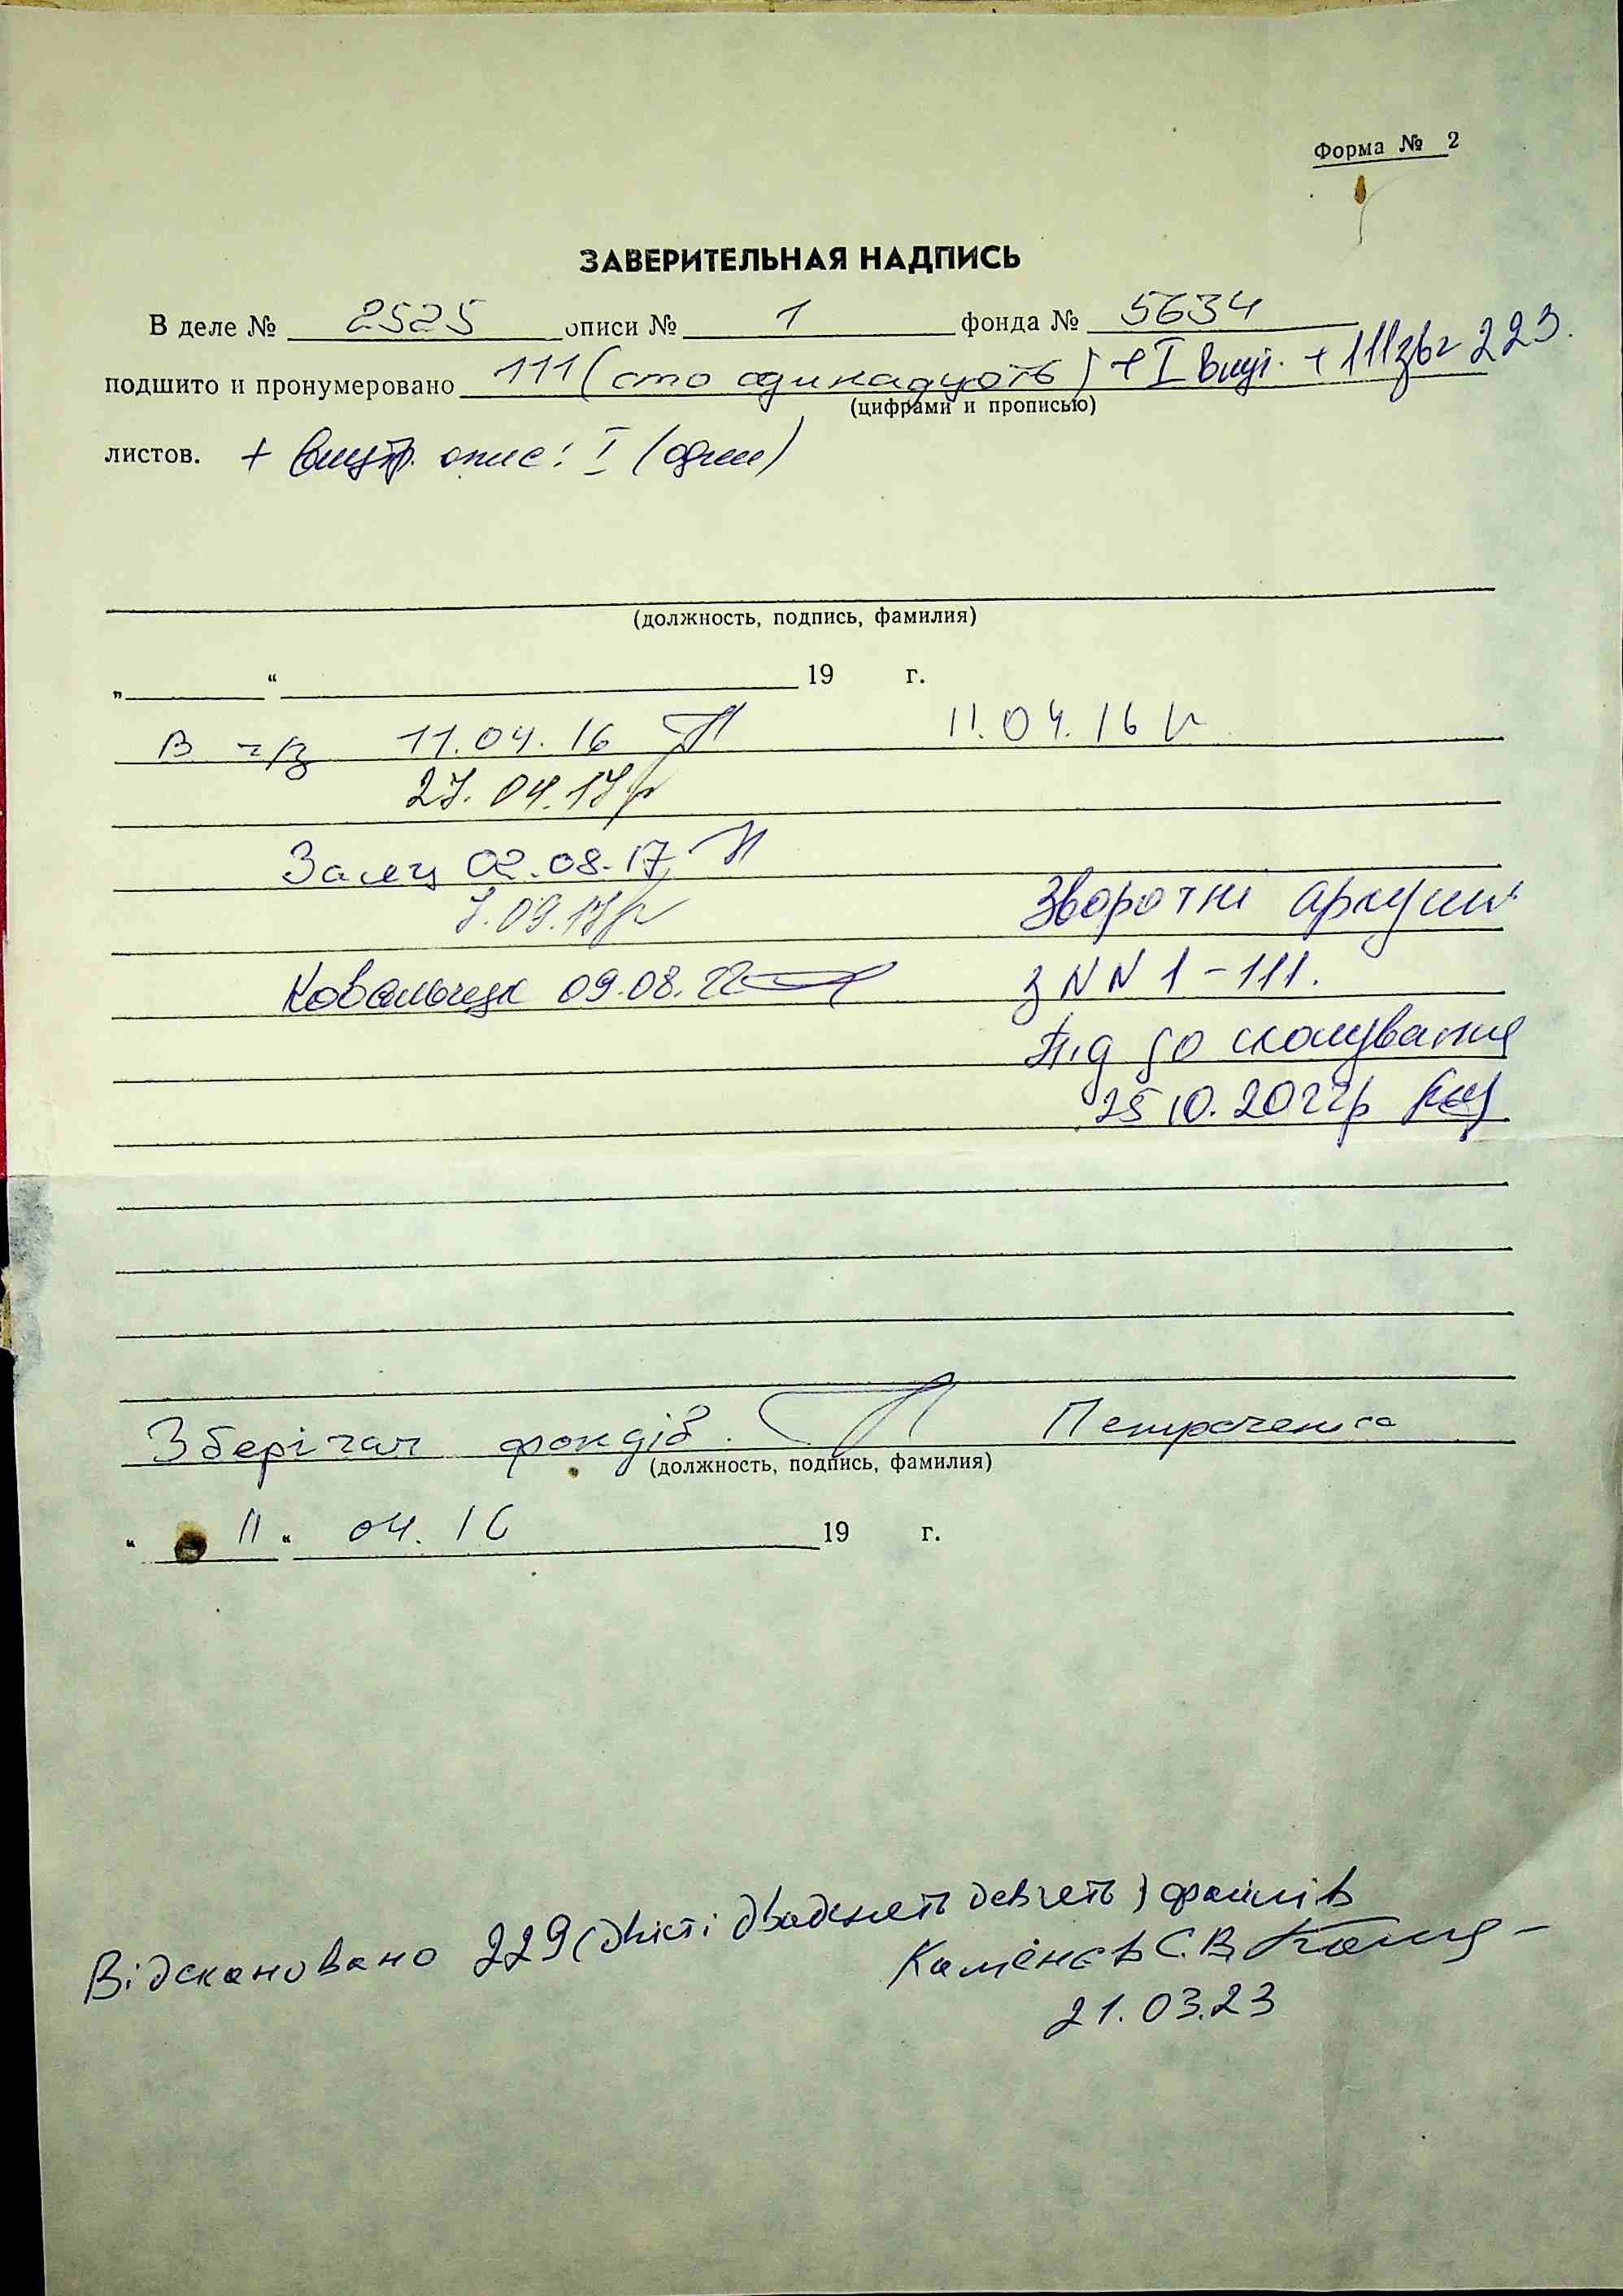 Форма № 2
ЗАВЕРИТЕЛЬНАЯ НАДПИСЬ
В деле № 2525 описи № 1 фонда № 5634
подшито и пронумеровано 111 (сто одинадцять) + I внут. + 111зв= 223.
(цифрами и прописью)
листов. + внутр. опис: I (один)
(должность, подпись, фамилия)
„ “ 19 г.
В ч/з 11.04.16 11.04.16
27.04.17р
02.08.17
7.09.17р
Зворотні аркуші
Ковальчук 09.08.22
з NN 1-111.
Під до сканування
25.10.2022р
Зберігач фондів Петраченко
(должность, подпись, фамилия)
„ 11 “ 04.16 19 г.
Відскановано 229 (двісті двадцять девять) файлів
Каменєв С.В.
21.03.23